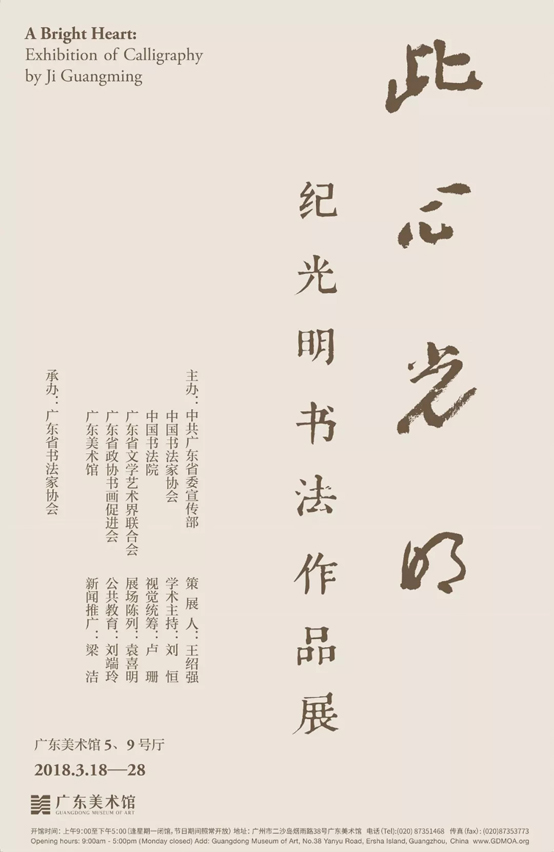 A Bright Heart:
Exhibition of Calligraphy
by Ji Guangming
此心光明
纪光明书法作品展
主办：中共广东省委宣传部
中国书法家协会
中国书法院
广东省文学艺术界联合会
广东省政协书画促进会
广东美术馆
承办：广东省书法家协会
策展人：王绍强
学术主持：刘恒
视觉统筹：卢珊
展场陈列：袁喜明
公共教育：刘端玲
新闻推广：梁洁
广东美术馆 5、9 号厅
2018.3.18—28
广东美术馆
GUANGDONG MUSEUM OF ART
开馆时间：上午9:00至下午5:00(逢星期一闭馆，节日期间照常开放) 地址：广州市二沙岛烟雨路38号广东美术馆 电话(Tel):(020) 87351468 传真(fax)：(020)87353773
Opening hours: 9:00am - 5:00pm (Monday closed) Add: Guangdong Museum of Art, No.38 Yanyu Road, Ersha Island, Guangzhou, China www.GDMOA.org